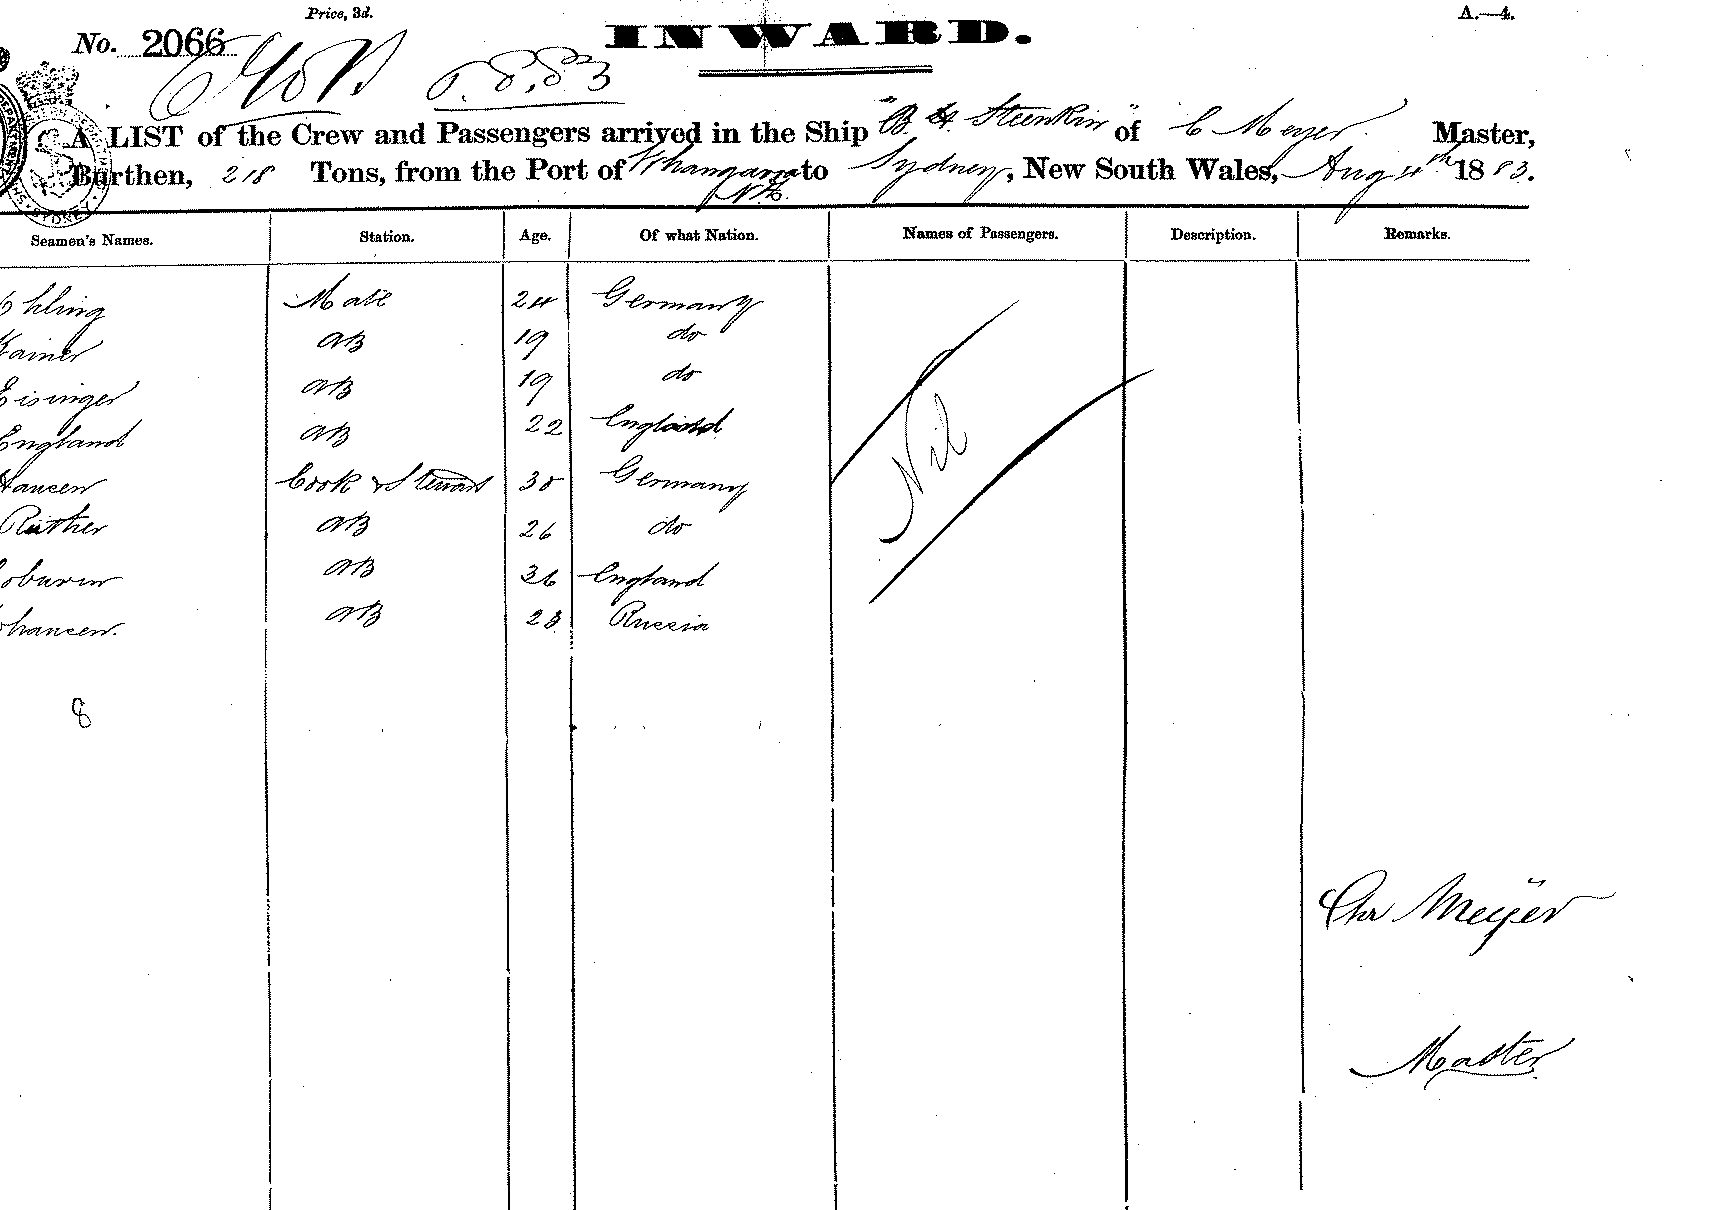 Price, 3d.
A.—4.
No. 2066
INWARD.
6.8.83
A LIST of the Crew and Passengers arrived in the Ship "B. H. Steenken" of C Meyer Master,
Burthen, 218 Tons, from the Port of Whangarei N.Z. to Sydney, New South Wales, Aug 4th 1883.
Seamen's Names. Station. Age. Of what Nation. Names of Passengers. Description. Remarks.
Ehling Mate 24 Germany
Kainer AB 19 do
Eisinger AB 19 do
England AB 22 England
Hansen Cook & Steward 30 Germany
Ruther AB 26 do
AB 36 England
ohansen. AB 28 Russia
Nil
8
Chr Meÿer
Master
SYDNEY